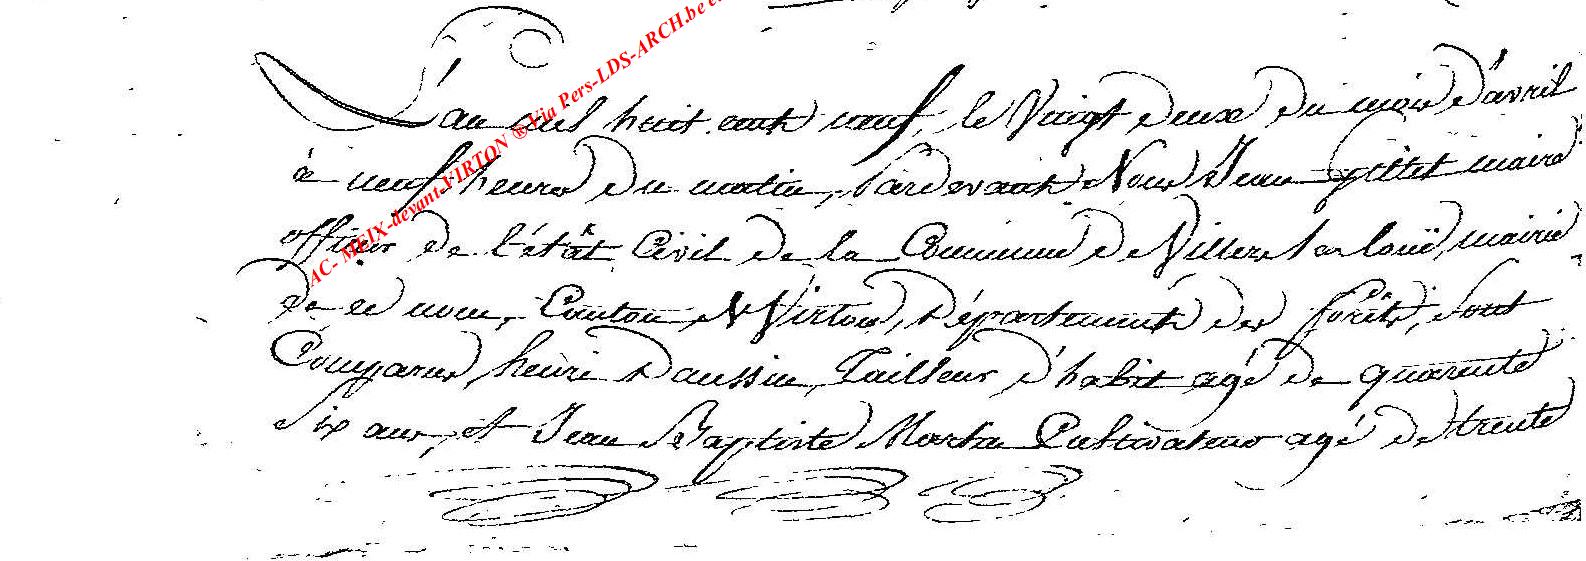 L'an mil huit cent neuf, le Vingt deux du mois d'avril
à neuf heures du matin, Pardevant Nous Jean maire
officier de l'état Civil de la Commune de Villers la loüe, mairie
de ce nom, Canton de Virton, Département des forêts, sont
Comparus henri Daussin, Tailleur d'habit agé de quarente
Six ans, et Jean Baptiste Cultivateur agé de trente
AC- MEIX-devant-VIRTON ® Via Pers-LDS-ARCH.be e